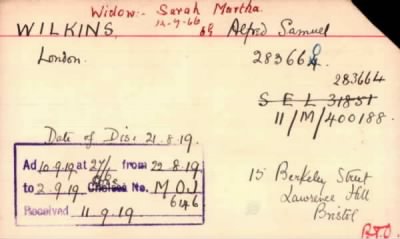 Widow:- Sarah Martha.
12-9-66
WILKINS, Alfred Samuel
London. 283664
283664
S E L 31851
11/M/400188.
Date of Dis: 21.8.19.
Ad 10.9.19 at 27/6 from 22.8.19
to 2.9.19 Chelsea No. M O J
646
Received 11.9.19
15 Berkeley Street
Lawrence Hill
Bristol
R.T.O.